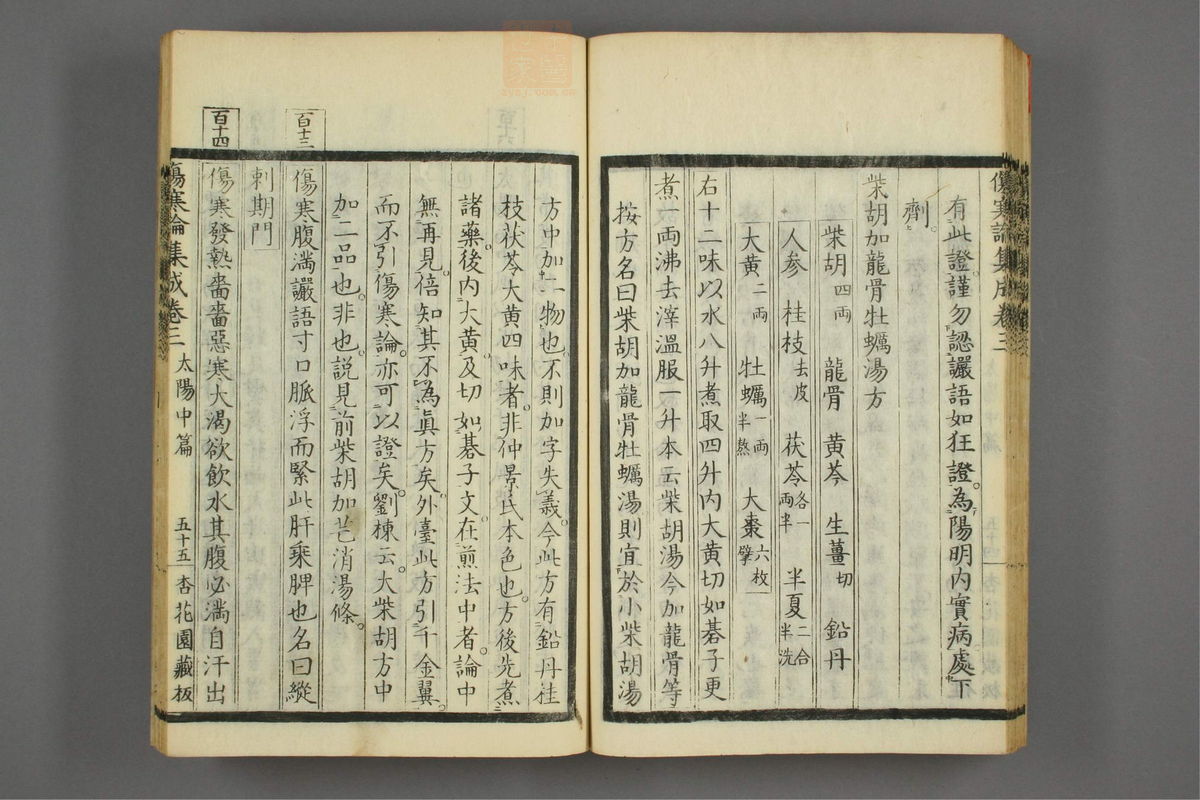 傷寒論集成卷三
有此證謹勿認讝語如狂證爲陽明內實病處下
劑
柴胡加龍骨牡蠣湯方
柴胡四兩 龍骨 黄芩 生薑切 鉛丹
人參 桂枝去皮 茯苓各一兩半 半夏二合半洗
大黄二兩 牡蠣一兩半熬 大棗六枚擘
右十二味以水八升煮取四升內大黄切如碁子更
煮一兩沸去滓溫服一升本云柴胡湯今加龍骨等
按方名曰柴胡加龍骨牡蠣湯則宜於小柴胡湯
方中加二物也不則加字失義今此方有鉛丹桂
枝茯苓大黄四味者非仲景氏本色也方後先煮
諸藥後內大黄及切如碁子文在煎法中者論中
無再見倍知其不爲眞方矣外臺此方引千金翼
而不引傷寒論亦可以證矣劉棟云大柴胡方中
加二品也非也說見前柴胡加芒消湯條
百十三
傷寒腹滿讝語寸口脈浮而緊此肝乘脾也名曰縱
刺期門
百十四
傷寒發熱嗇嗇惡寒大渴欲飲水其腹必滿自汗出
傷寒論集成卷三 太陽中篇 五十五 杏花園藏板